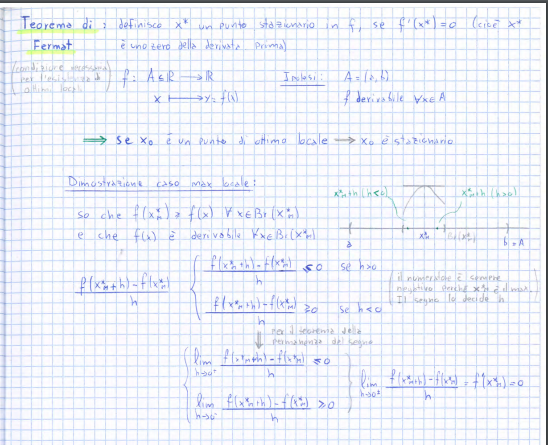 Teorema di : definisco x* un punto stazionario in f, se f'(x*)=0 (cioè x*
Fermat è uno zero della derivata prima)
(condizione necessaria
per l'esistenza di
ottimi locali)
f: A⊆ℝ → ℝ
x ↦ y=f(x)
Ipotesi: A=(a,b)
f derivabile ∀x∈A
⇒ se x₀ è un punto di ottimo locale → x₀ è stazionario
Dimostrazione caso max locale:
x*ₘ+h (h<0) x*ₘ+h (h>0)
so che f(x*ₘ) ≥ f(x) ∀x∈Br(x*ₘ)
e che f(x) è derivabile ∀x∈Br(x*ₘ)
a x*ₘ Br(x*ₘ) b = A
f(x*ₘ+h)-f(x*ₘ) / h
{ f(x*ₘ+h)-f(x*ₘ) / h ≤0 se h>0
f(x*ₘ+h)-f(x*ₘ) / h ≥0 se h<0
(il numeratore è sempre
negativo perché x*ₘ è il max.
Il segno lo decide h
⇓ per il teorema della
permanenza del segno
{ lim h→0⁺ f(x*ₘ+h)-f(x*ₘ) / h ≤0
lim h→0⁻ f(x*ₘ+h)-f(x*ₘ) / h ≥0
} lim h→0± f(x*ₘ+h)-f(x*ₘ) / h = f'(x*ₘ)=0